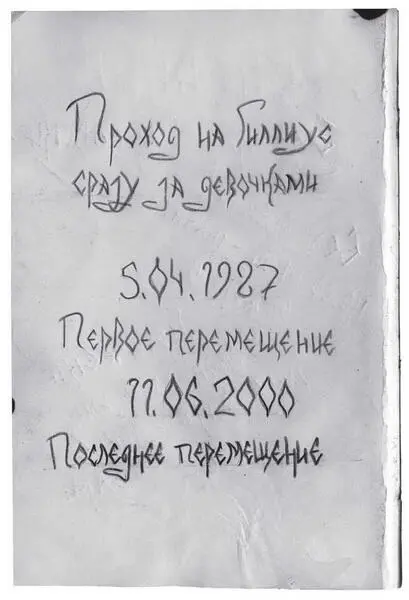 Проход на Гиллиус
сразу за девочками
5.04.1987
Первое перемещение
11.06.2000
Последнее перемещение